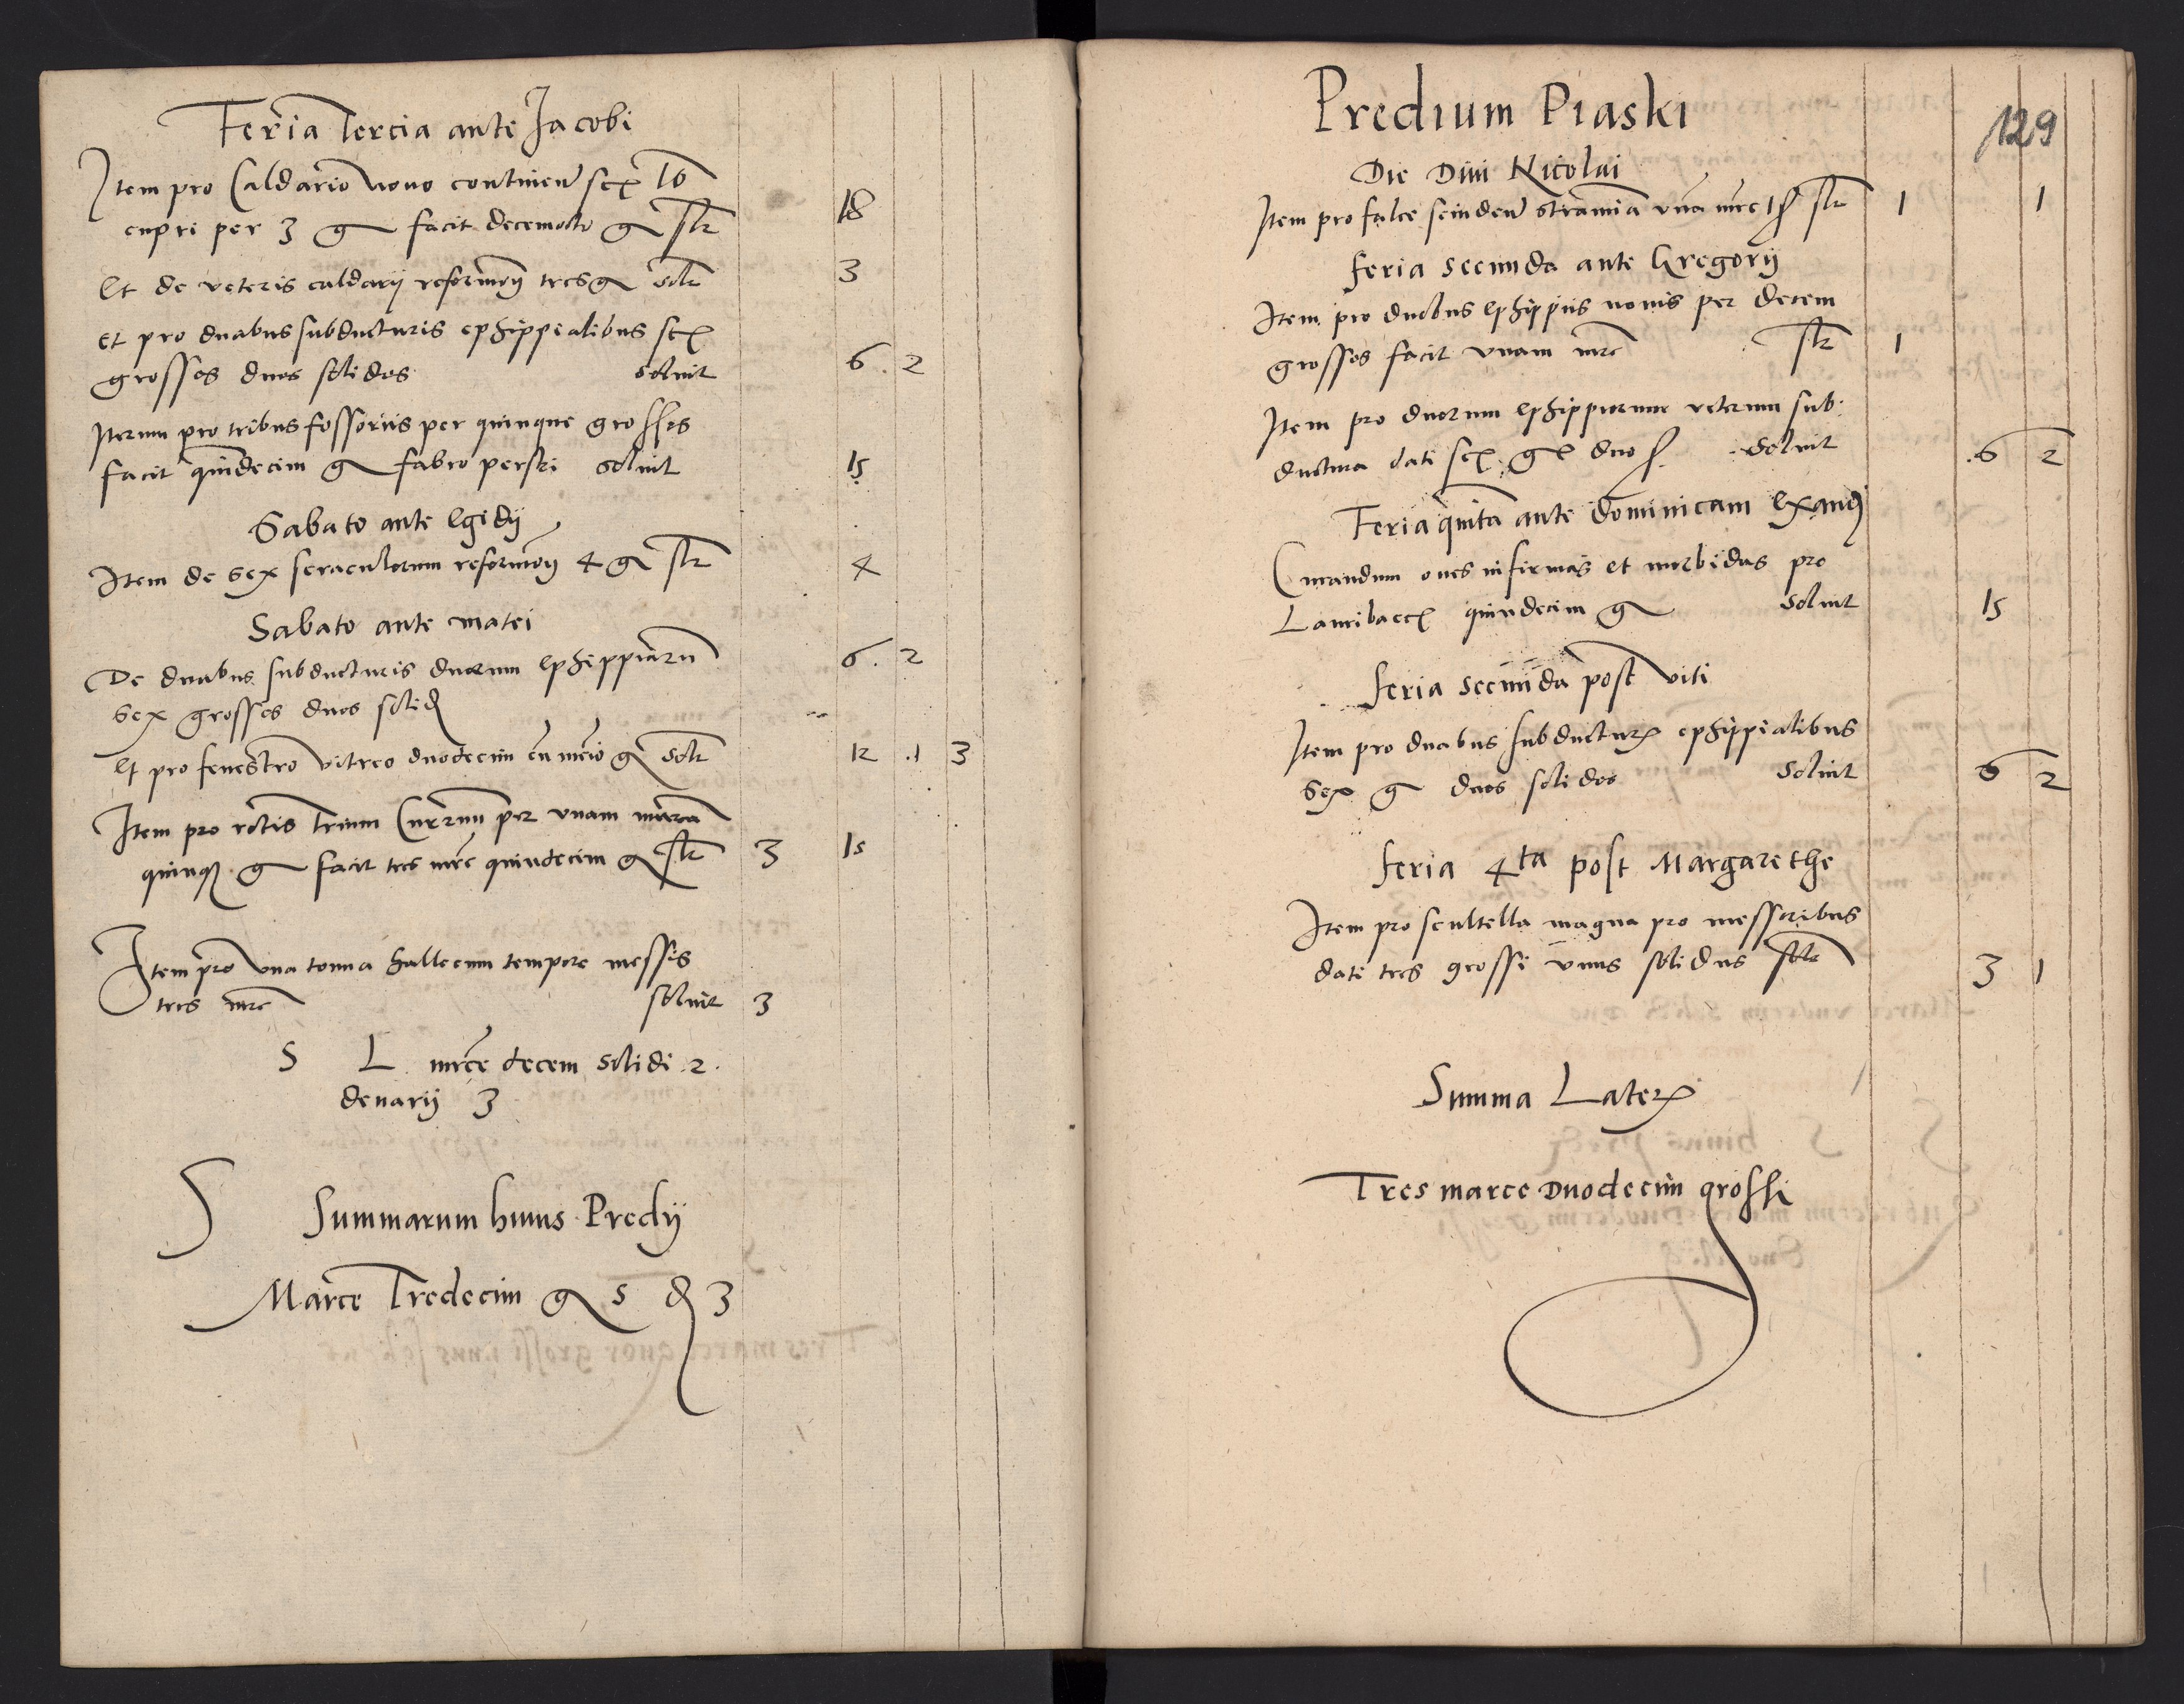 Feria Tercia ante Jacobi
Item pro Caldario novo continen sex lb
cupri per 3 g facit decemocto g slt 18
Et de veteris caldarij reformacoj tres g solt 3
et pro duabus subducturis ephippialibus sex
grosses duos solidos solvit 6 . 2
Iterum pro tribus fossoriis per quinque grosses
facit quindecim g fabro perski solvit 15
Sabato ante Egidij
Item de sex seraculorum reformacoj 4 g slt 4
Sabato ante matei
De duabus subducturis duorum Ephippiaru 6 . 2
sex grosses duos solid
Et pro fenestro vitreo duodecim cu medio g solt 12 . 1 3
Item pro rotis trium Curruum per unam marca
quinq g facit tres mrc quindecim g slt 3 15
Item pro una tonna hallecum tempore messis
tres mrc solvit 3
S L mrce decem solidi 2 .
denarij 3
S Summarum huius Predij
Marce Tredecim g 5 d 3
Predium Piaski
129
Die Divi Nicolai
Item pro falce scinden stramina una mrc 1 s slt 1 1
feria secunda ante Gregorij
Item pro duobus Ephippiis novis per decem
grosses facit unam mrc slt 1
Item pro duorum Ephippiorum veterum sub
ductura dati sex g duo s. solvit . 6 2
Feria quinta ante dominicam Exaudj
Curandum oves infirmas et morbidas pro
Lauribacc quindecim g solvit 15
feria secunda post viti
Item pro duabus subductur ephippialibus
sex g duos solidos solvit 6 2
feria 4ta post Margarethe
Item pro scultella magna pro messoribus
dati tres grossi unus solidus solt 3 1
Summa Lateris
Tres marce Duodecim grossi